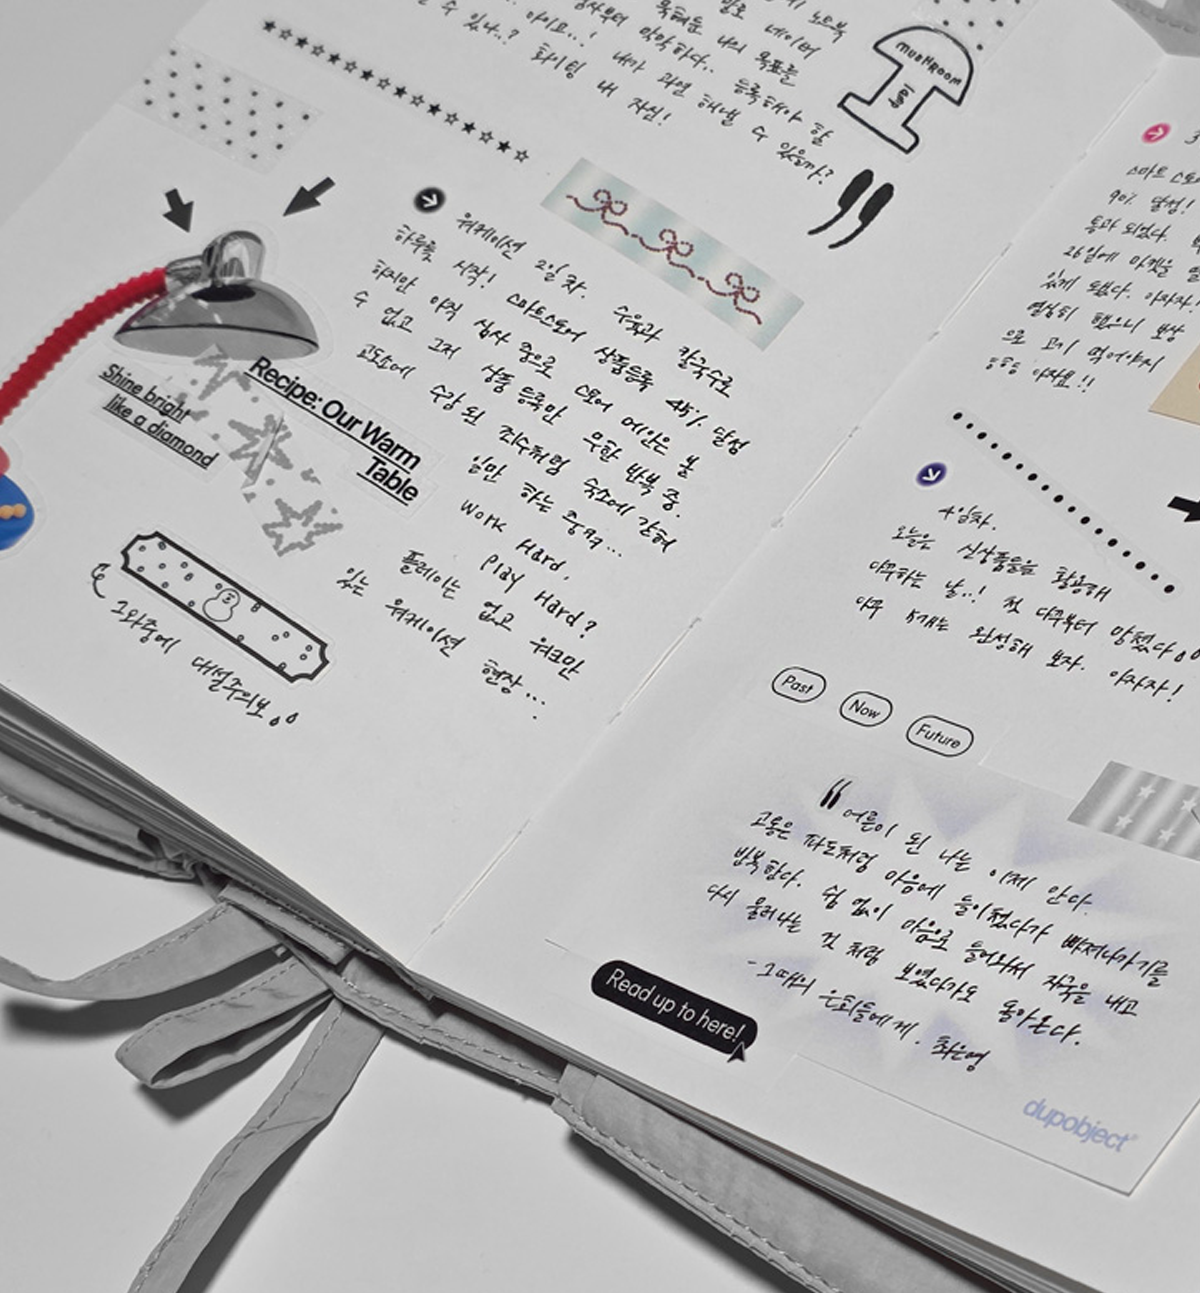 노트북
발로 네이버
목해둔 나의 목표를
심사부터 막막하다.. 등록해야 할
수 있나..? 아이요..! 내가 과연 해낼 수 있을까?
화이팅 내 자신!
MUSHROOM
워케이션 2일차. 수육과 칼국수로
하루를 시작! 스마트스토어 상품등록 45% 달성
하지만 아직 심사 중으로 스토어 메인은 볼
수 없고 그저 상품 등록만 무한 반복 중.
교도소에 수감 된 죄수처럼 숙소에 갇혀
일만 하는 중ㅋㅋ...
Work Hard,
Play Hard?
플레이는 없고 워크만
있는 워케이션 현장...
Shine bright
like a diamond
Recipe: Our Warm
Table
그와중에 대설주의보
스마트 스토어
90% 달성!
통과 되었다.
26일에 마켓을
있게 됐다. 아자자!
열심히 했으니 보상
으로 고기 먹어야지
아자요!!
4일차.
오늘은 신상품들을 활용해
다꾸하는 날..! 첫 다꾸부터 망쳤다
다꾸 5개는 완성해 보자. 아자자!
Past
Now
Future
“어른이 된 나는 이제 안다.
고통은 파도처럼 마음에 들이쳤다가 빠져나가기를
반복한다. 쉼 없이 마음으로 들어와서 자국을 내고
다시 물러나는 것 처럼 보였다가도 돌아온다.
- 그때의 은희들에게. 최은영
Read up to here!
dupobject